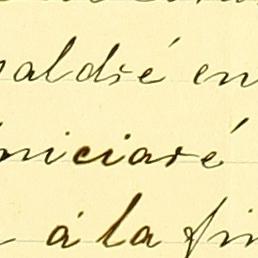 saldré en
iniciaré
á la fin